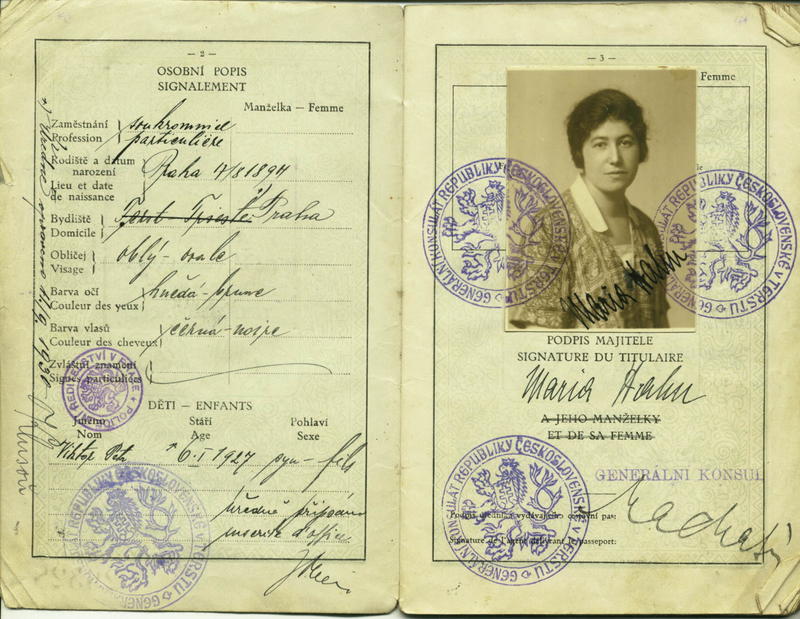 — 2 —
OSOBNÍ POPIS
SIGNALEMENT
Manželka — Femme
Zaměstnání
Profession
soukromnice
particulière
Rodiště a datum
narození
Lieu et date
de naissance
Praha 4/8 1894
Bydliště
Domicile
Praha
Obličej
Visage
oblý - ovale
Barva očí
Couleur des yeux
hnědá - brune
Barva vlasů
Couleur des cheveux
černá - noire
Zvláštní znamení
Signes particulières
DĚTI — ENFANTS
Jméno
Nom
Stáří
Age
Pohlaví
Sexe
Viktor Petr * 6-I 1927 syn - fils
úředně připsáno
inscrit d'office
GENERÁLNÍ KONSULÁT REPUBLIKY ČESKOSLOVENSKÉ V TERSTU
— 3 —
Femme
GENERÁLNÍ KONSULÁT REPUBLIKY ČESKOSLOVENSKÉ V TERSTU
GENERÁLNÍ KONSULÁT REPUBLIKY ČESKOSLOVENSKÉ V TERSTU
Maria Hahn
PODPIS MAJITELE
SIGNATURE DU TITULAIRE
Maria Hahn
A JEHO MANŽELKY
ET DE SA FEMME
GENERÁLNÍ KONSUL
GENERÁLNÍ KONSULÁT REPUBLIKY ČESKOSLOVENSKÉ V TERSTU
Podpis úředníka vydávajícího cestovní pas:
Signature de l'agent délivrant le passeport: